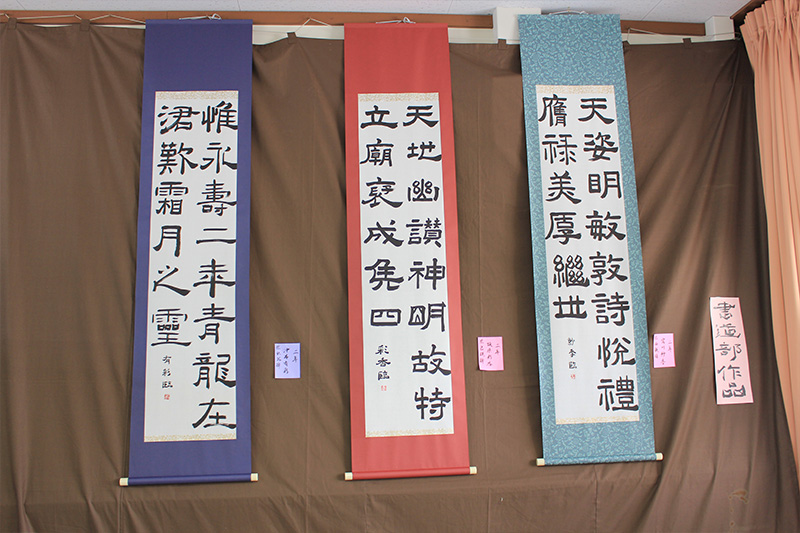 書道部作品
天姿明敏敦詩悅禮
膺禄美厚繼世
天地幽讃神明故特
立廟褒成侯四
彩杏臨
惟永壽二年青龍在
涒歎霜月之靈
有彩臨